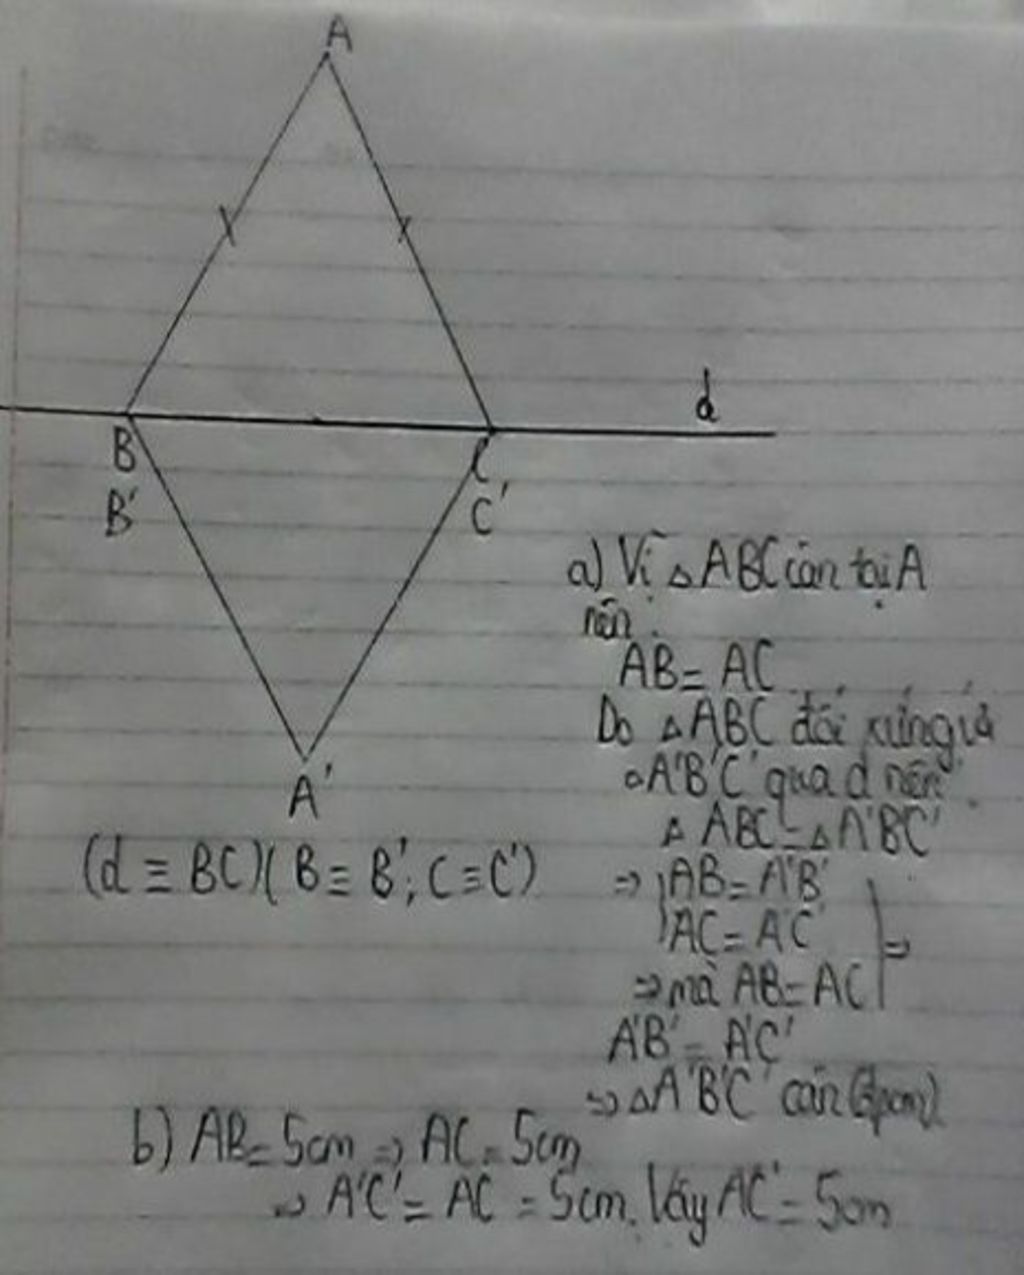 A
d
B
C
B'
C'
A'
(d ≡ BC)(B ≡ B'; C ≡ C')
a) Vì △ABC cân tại A
nên:
AB = AC
Do △ABC đối xứng
△A'B'C' qua d nên
△ABC = △A'B'C'
=> AB = A'B'
AC = A'C'
=>
=> mà AB = AC
A'B' = A'C'
=> △A'B'C' cân (đpcm)
b) AB = 5cm => AC = 5cm
=> A'C' = AC = 5cm. Vậy A'C' = 5cm